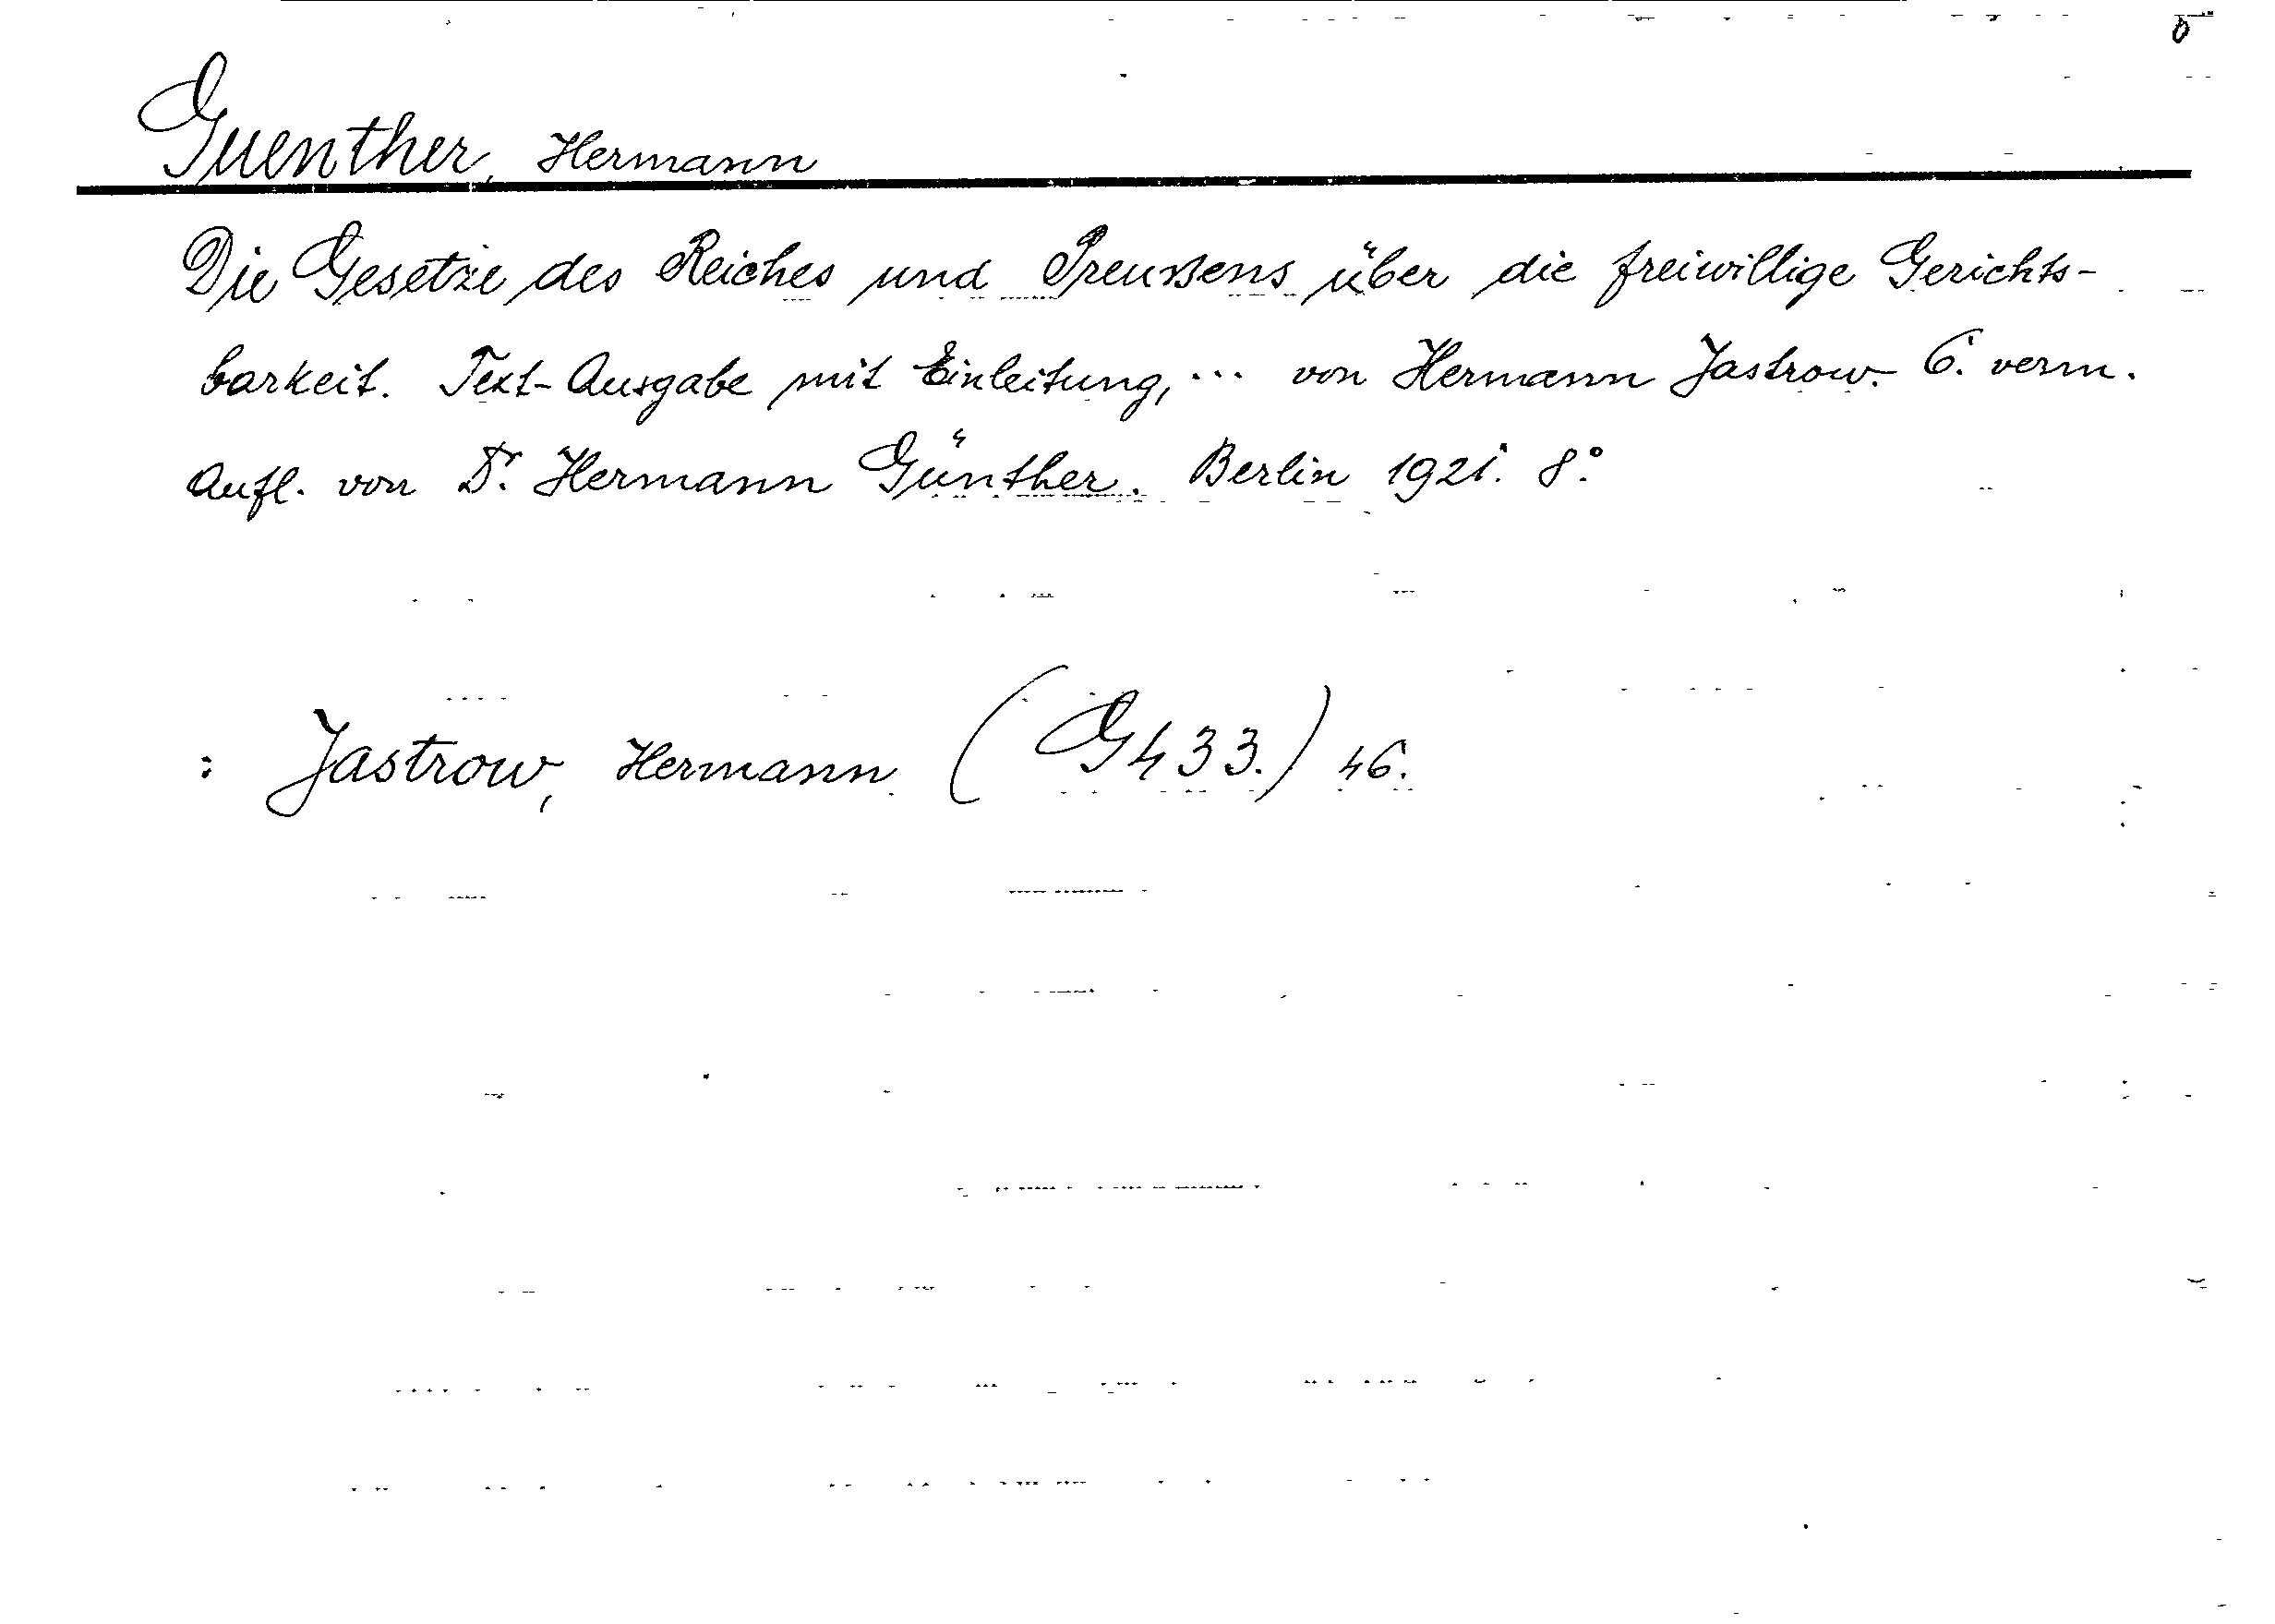 Guenther, Hermann
Die Gesetze des Reiches und Preußens über die freiwillige Gerichts-
barkeit. Text-Ausgabe mit Einleitung, ... von Hermann Jastrow. 6. verm.
Aufl. von Dr. Hermann Günther. Berlin 1921. 8°.
: Jastrow, Hermann (G 433.) 46.